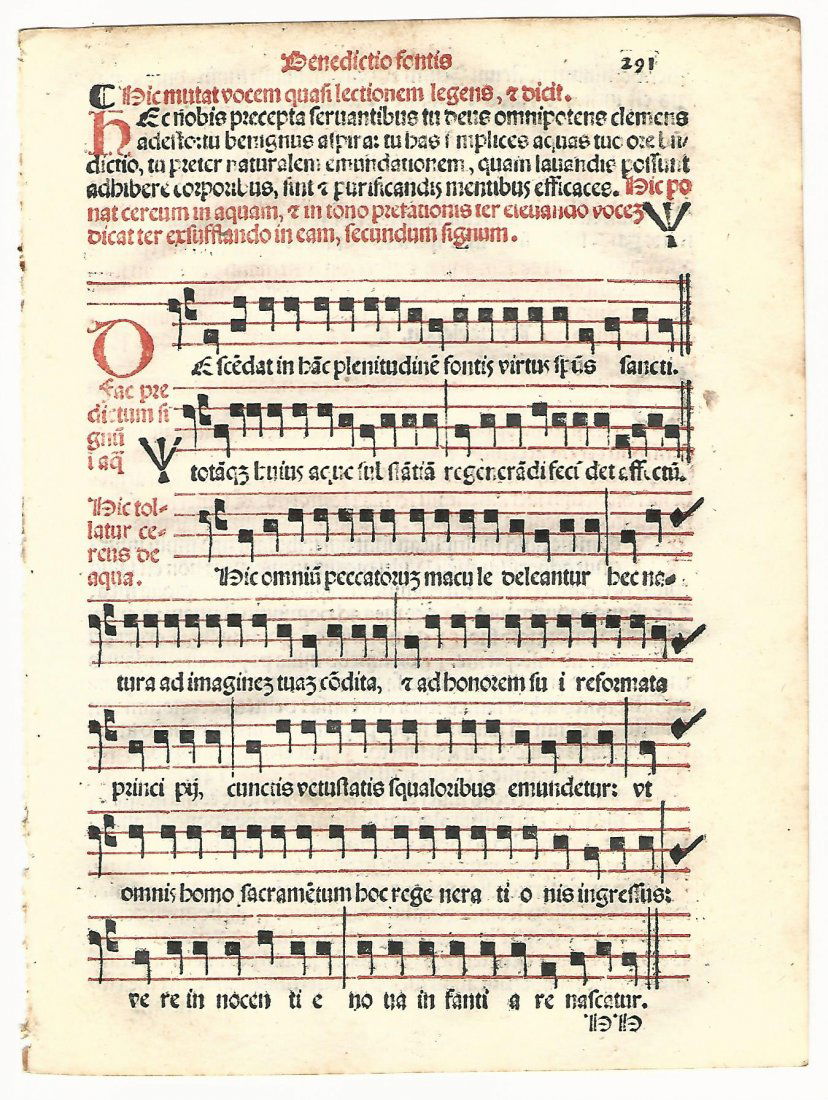 Benedictio fontis 291
¶ Hic mutat vocem quasi lectionem legens, ⁊ dicit.
HEc nobis precepta seruantibus tu deus omnipotens clemens
adesto: tu benignus aspira: tu has simplices aquas tuo ore bn̄
dictio, tu preter naturalem emundationem, quam lauandis possunt
adhibere corporibus, sint ⁊ purificandis mentibus efficaces. Hic po
nat cereum in aquam, ⁊ in tono prefationis ter eleuando vocez
dicat ter exsufflando in eam, secundum signum.
DEscēdat in hāc plenitudinē fontis virtus spūs sancti.
Fac pre
dictum si
gnū
i aq̄
totāqz huius aque substātiā regenerādi fecūdet effectū.
Hic tol-
latur ce-
reus de
aqua.
Hic omniū peccatoruz macule deleantur hec na-
tura ad imaginez tuaz cōdita, ⁊ ad honorem su i reformata
princi pij, cunctis vetustatis squaloribus emundetur: vt
omnis homo sacramētum hoc rege nera ti o nis ingressus:
ve re in nocen ti e no ua in fanti a re nascatur.
HH